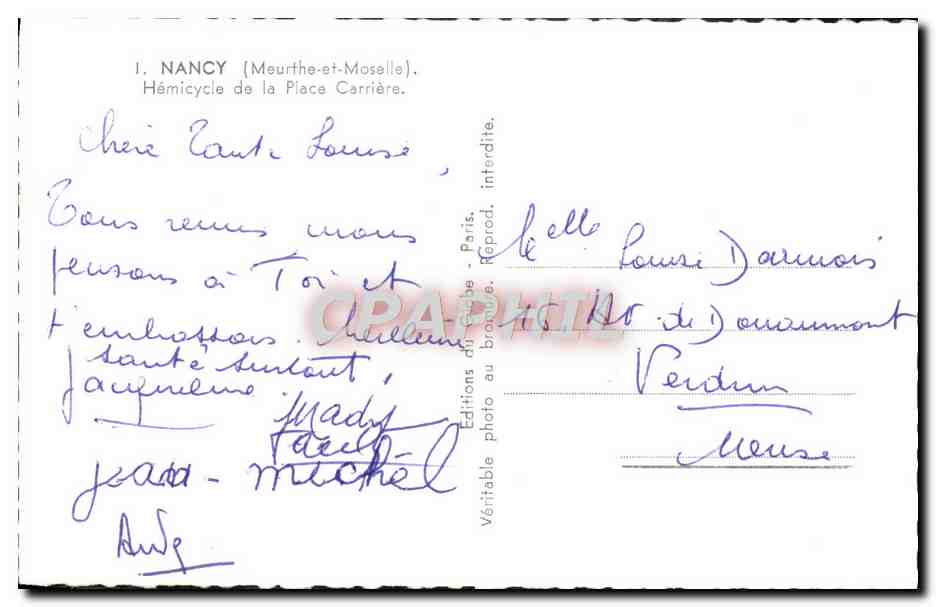 1. NANCY (Meurthe-et-Moselle).
Hémicycle de la Place Carrière.
Chère Tante Louise,
Tous reunis nous
pensons à Toi et
t'embrassons. Meilleure
santé surtout,
Jacqueline
Mady
Paul
jean-michel
Editions du Globe - Paris.
Véritable photo au bromure. Reprod. interdite.
CPAPHIL
Melle Louise Darmois
15 Av. de Douaumont
Verdun
Meuse